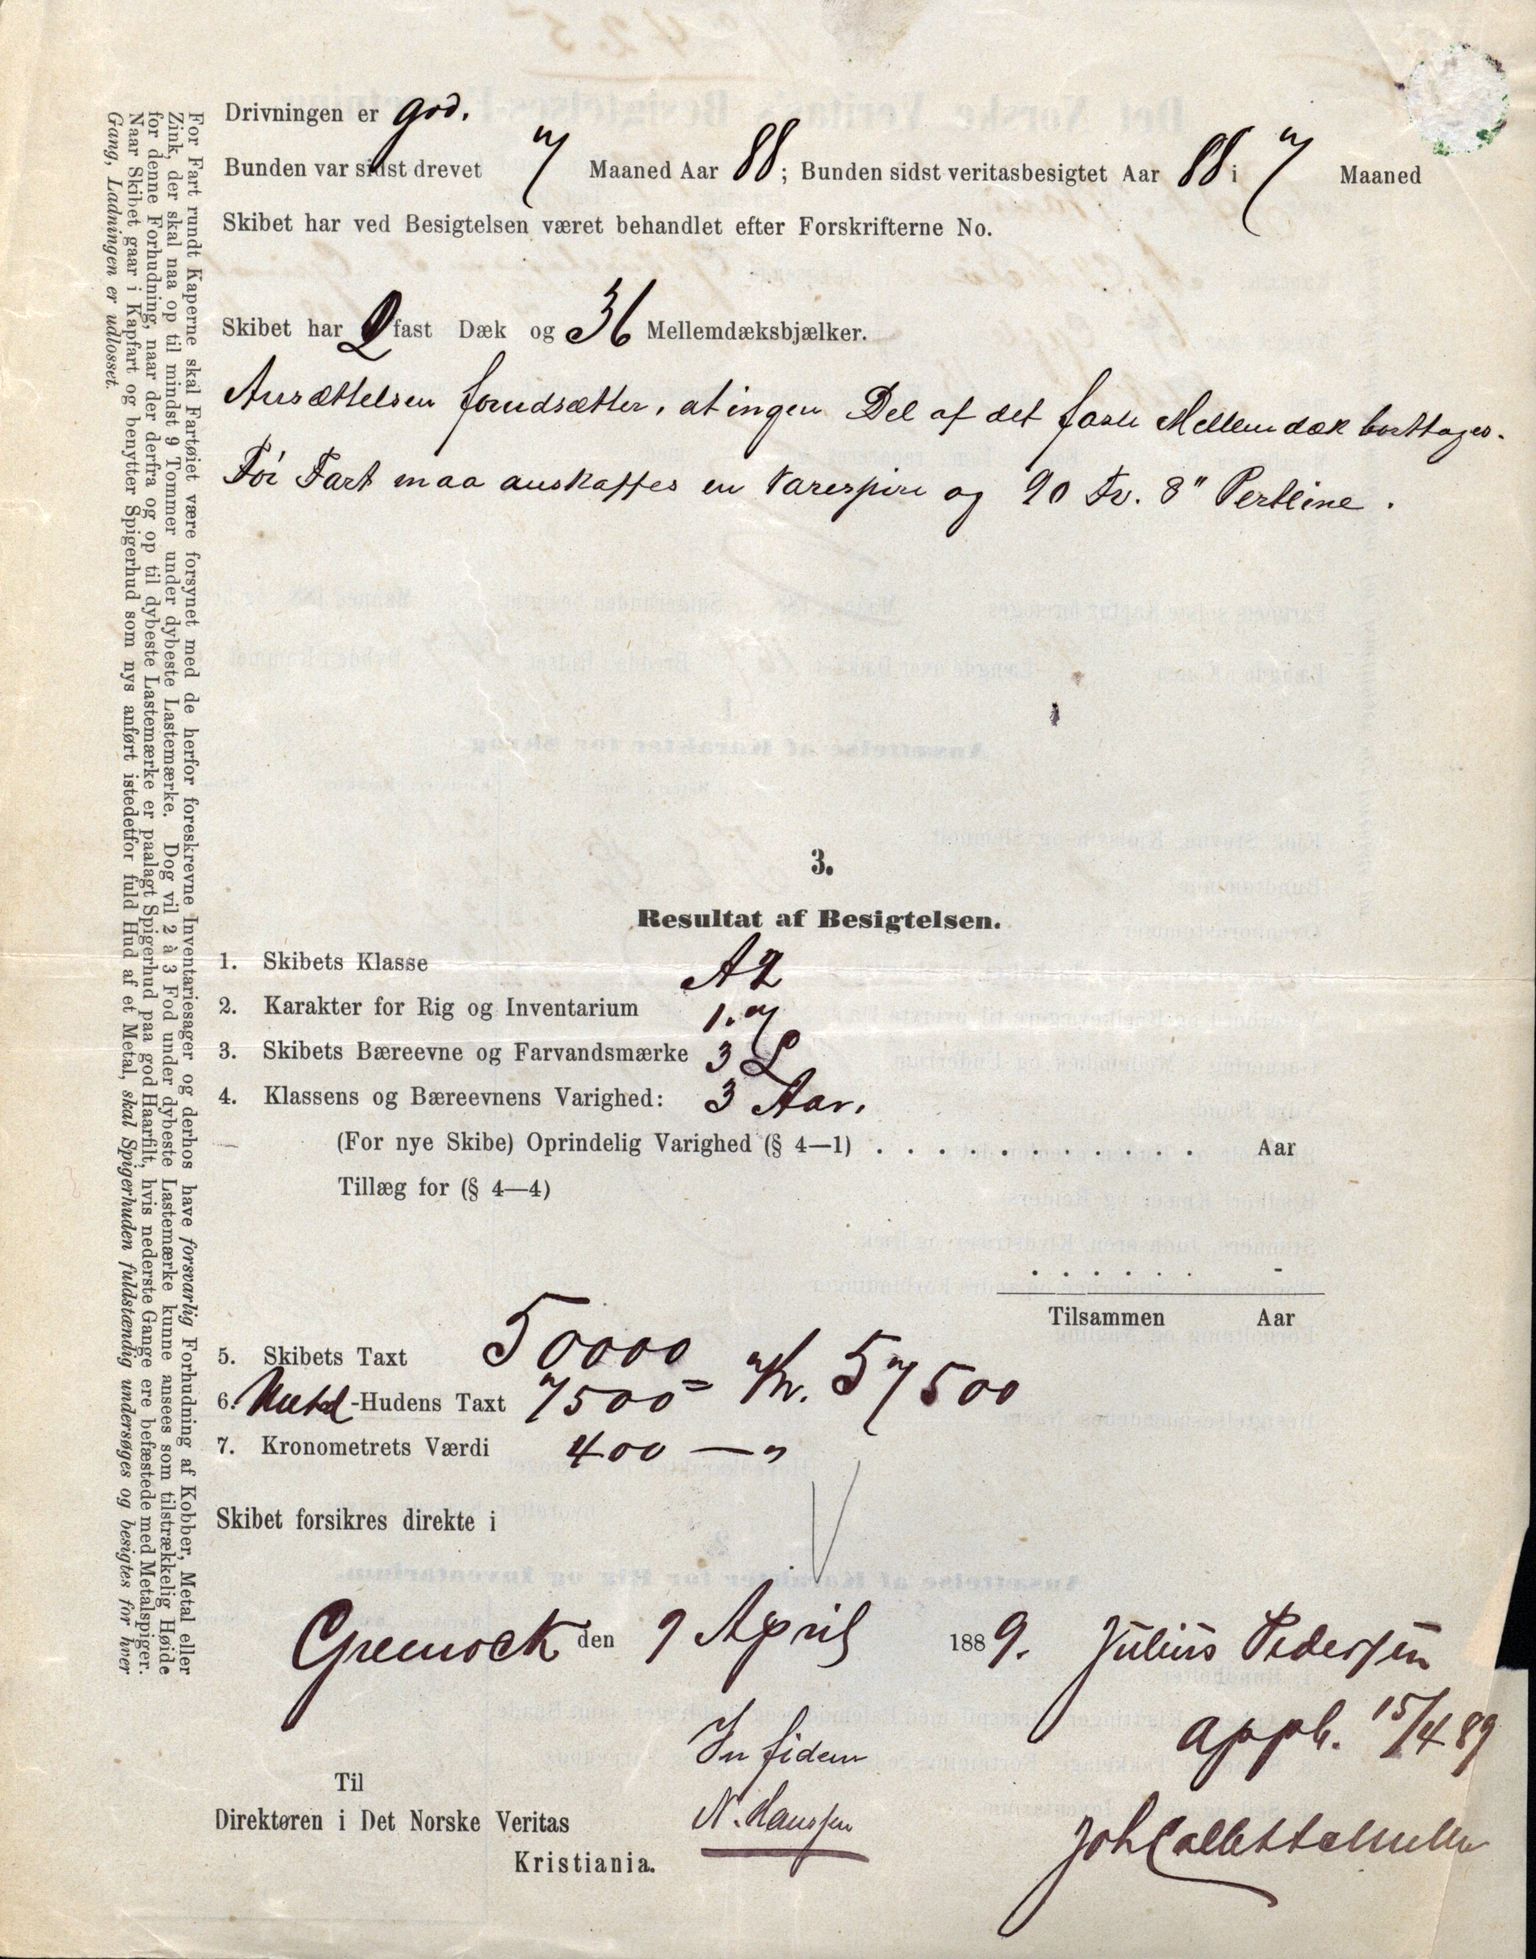 Drivningen er god.
Bunden var sidst drevet 7 Maaned Aar 88; Bunden sidst veritasbesigtet Aar 88 i 7 Maaned
Skibet har ved Besigtelsen været behandlet efter Forskrifterne No.
Skibet har 2 fast Dæk og 36 Mellemdæksbjælker.
Ansættelsen forudsætter, at ingen Del af det faste Mellemdæk borttages.
Før Fart maa anskaffes en Varespire og 90 Fv. 8" Pertline.
3.
Resultat af Besigtelsen.
1. Skibets Klasse A2
2. Karakter for Rig og Inventarium 1.7
3. Skibets Bæreevne og Farvandsmærke 3 L
4. Klassens og Bæreevnens Varighed: 3 Aar.
(For nye Skibe) Oprindelig Varighed (§ 4—1) . . . . . . . . . . . . Aar
Tillæg for (§ 4—4)
. . . . . . -
Tilsammen Aar
5. Skibets Taxt 50000
6. Metal-Hudens Taxt 7500 = Kr. 57500
7. Kronometrets Værdi 400 — "
Skibet forsikres direkte i
Greenock den 9 April 1889. Julius Pedersen
In fidem
appb. 15/4 89
N. Hanssen
Til
Direktøren i Det Norske Veritas
Kristiania.
For Fart rundt Kaperne skal Fartøiet være forsynet med de herfor foreskrevne Inventariesager og derhos have forsvarlig Forhudning af Kobber, Metal eller
Zink, der skal naa op til mindst 9 Tommer under dybeste Lastemærke. Dog vil 2 à 3 Fod under dybeste Lastemærke kunne ansees som tilstrækkelig Høide
for denne Forhudning, naar der derfra og op til dybeste Lastemærke er paalagt Spigerhud paa god Haarfilt, hvis nederste Gange ere befæstede med Metalspiger.
Naar Skibet gaar i Kapfart og benytter Spigerhud som nys anført istedetfor fuld Hud af et Metal, skal Spigerhuden fuldstændig undersøges og besigtes for hver
Gang, Ladningen er udlosset.